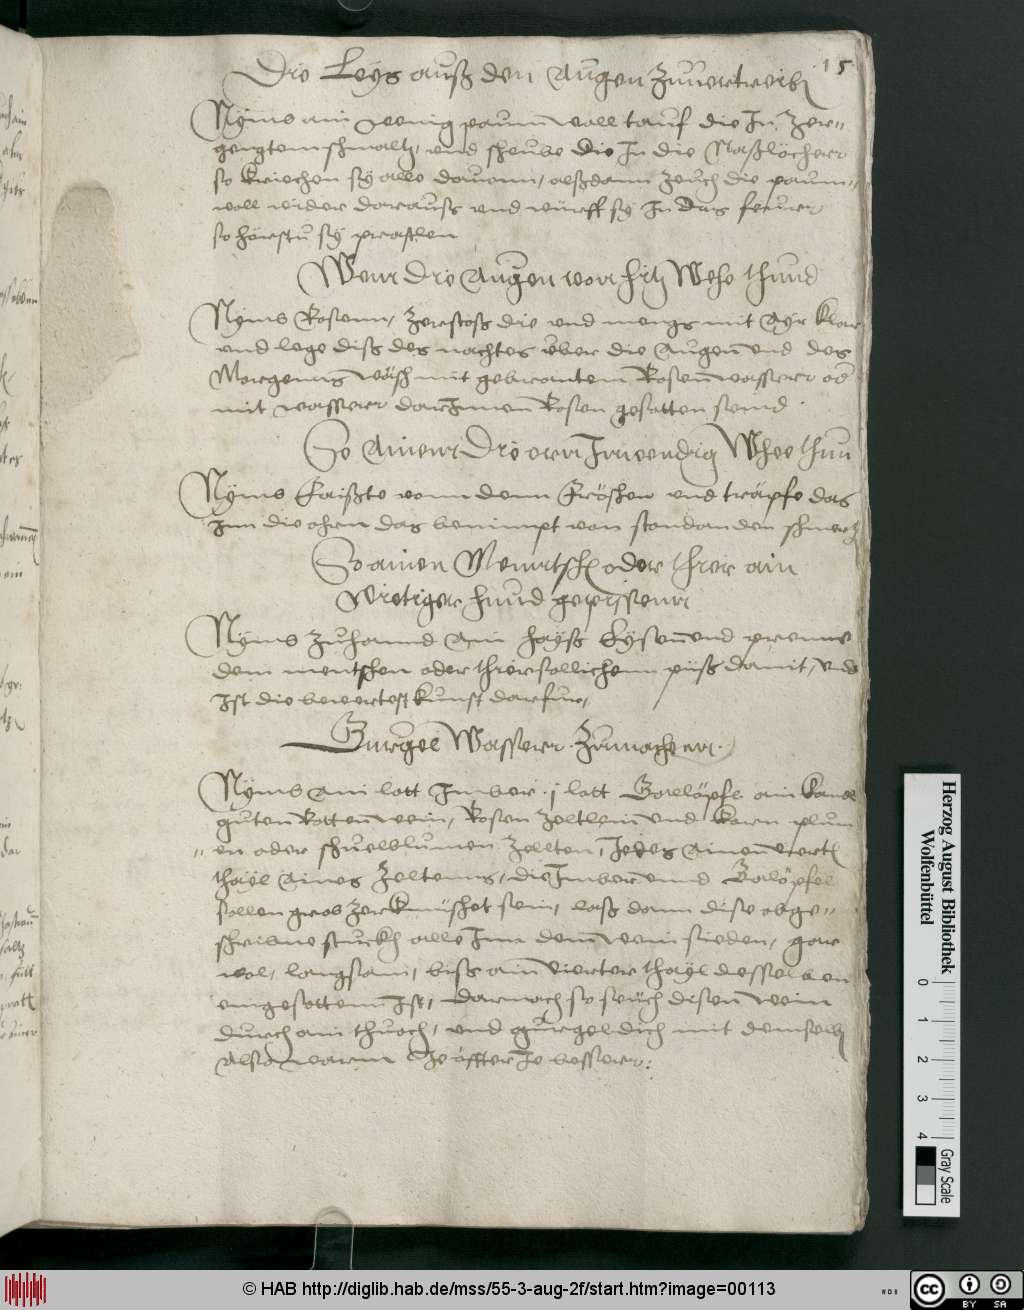 15
Die Leys auß den Augen Zuuertreiben
Nyms ain wenig paumwoll tauf die In Zer-
gengtem schmaltz, vnd scheube die In die Naßlöcherr
so kriechen sy alle dauonn, alßdann zeuch die paum-
woll wider darauß vnd würff sy In das feuer
so hörstu sy prastlen
Wenn die Augen von hitz Wehe thund
Nyms Rosenn, Zerstoß die vnd mengs mit Ayr klar
vnd lege diß des nachtes vber die Augen vnd des
Morgenns wäsch mit gebrantem Rosenwasser od
mit wasserr darInnen Rosen gesotten seind.
So Ainem Die orn Inwendig Whee thun
Nyms faißte vonn denn fröschen vnd träpfe das
Inn die ohrn das benimpt von stondan den schmertz
So ainen Menntsch oder thier ain
Wietiger hund gepissenn
Nyms zuhannd Ain hayß Eysenn vnd prenne
dem mentschen oder thier sollichem piß damit, vnd
Ist die bewertest kunst darfur,
Gurgel Wasserr Zumachenn.
Nyms Ain lott Imber .j. lott Gallöpfl ain kandl
guten Rotten wein, Rosen Zeltlein vnd korn plum
en oder schuelblumen Zelten, Iedes Ainen viertl
thayl Aines Zeltenns, die Imber vnnd Galöpfel
sollen grob Zerknüschet sein, laß dann dise obge-
schribne stuckh alle Inn dem wein sieden, gar
wol, langsam, biß ain vierter thayl desselben
eingesotten Ist, darnach so seüch disen wein
durch ain thuoch, vnd gurgel dich mit demselb
Also warm Ie öffter Ie besserr:
Herzog August Bibliothek
Wolfenbüttel
0 1 2 3 4
Gray Scale
© HAB http://diglib.hab.de/mss/55-3-aug-2f/start.htm?image=00113
WDB
CC BY SA